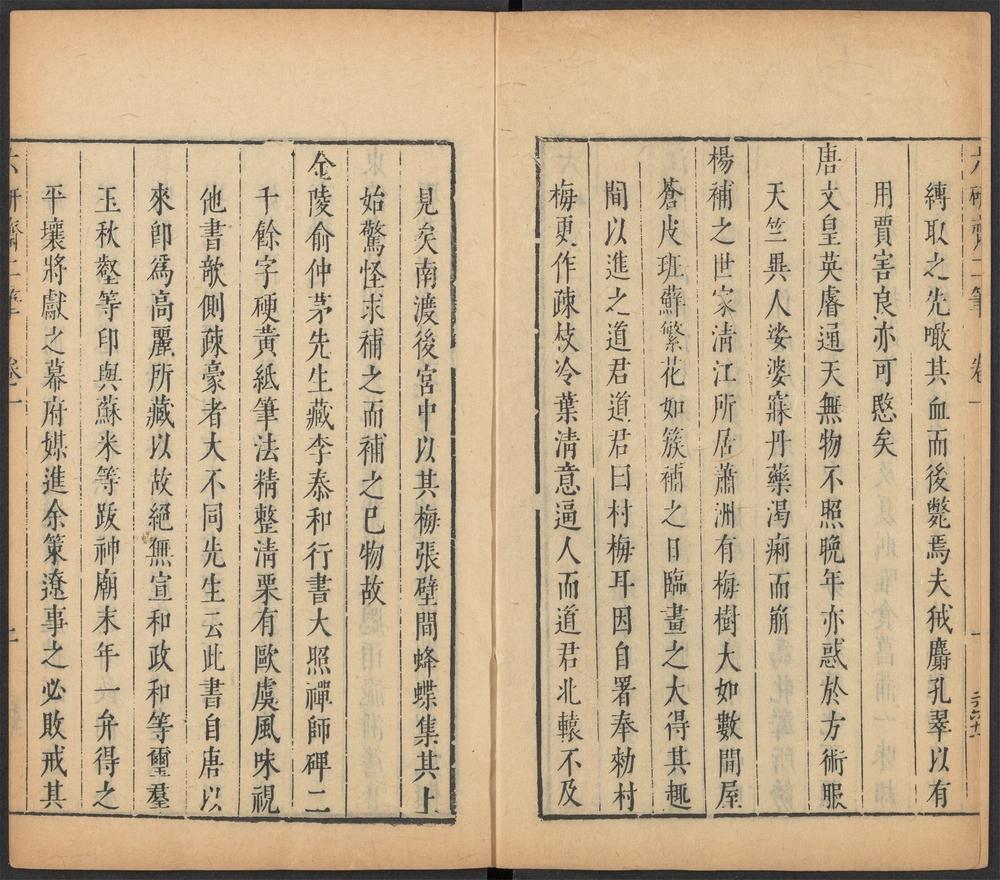 六硏齋二筆 卷一
縛取之先噉其血而後斃焉夫狨麝孔翠以有
用賈害良亦可愍矣
唐文皇英睿通天無物不照晚年亦惑於方術服
天竺異人娑婆寐丹藥渴痢而崩
楊補之世家淸江所居蕭洲有梅樹大如數間屋
蒼皮班蘇繁花如簇補之日臨畫之大得其趣
間以進之道君道君曰村梅耳因自署奉勑村
梅更作疎枝冷葉淸意逼人而道君北轅不及
見矣南渡後宮中以其梅張壁間蜂蝶集其上
始驚怪求補之而補之已物故
金陵俞仲茅先生藏李泰和行書大照禪師碑二
千餘字硬黃紙筆法精整淸栗有歐虞風味視
他書欹側疎豪者大不同先生云此書自唐以
來卽爲高麗所藏以故絕無宣和政和等璽羣
玉秋壑等印與蘇米等跋神廟末年一弁得之
平壤將獻之幕府媒進余策遼事之必敗戒其
六硏齋二筆 卷一